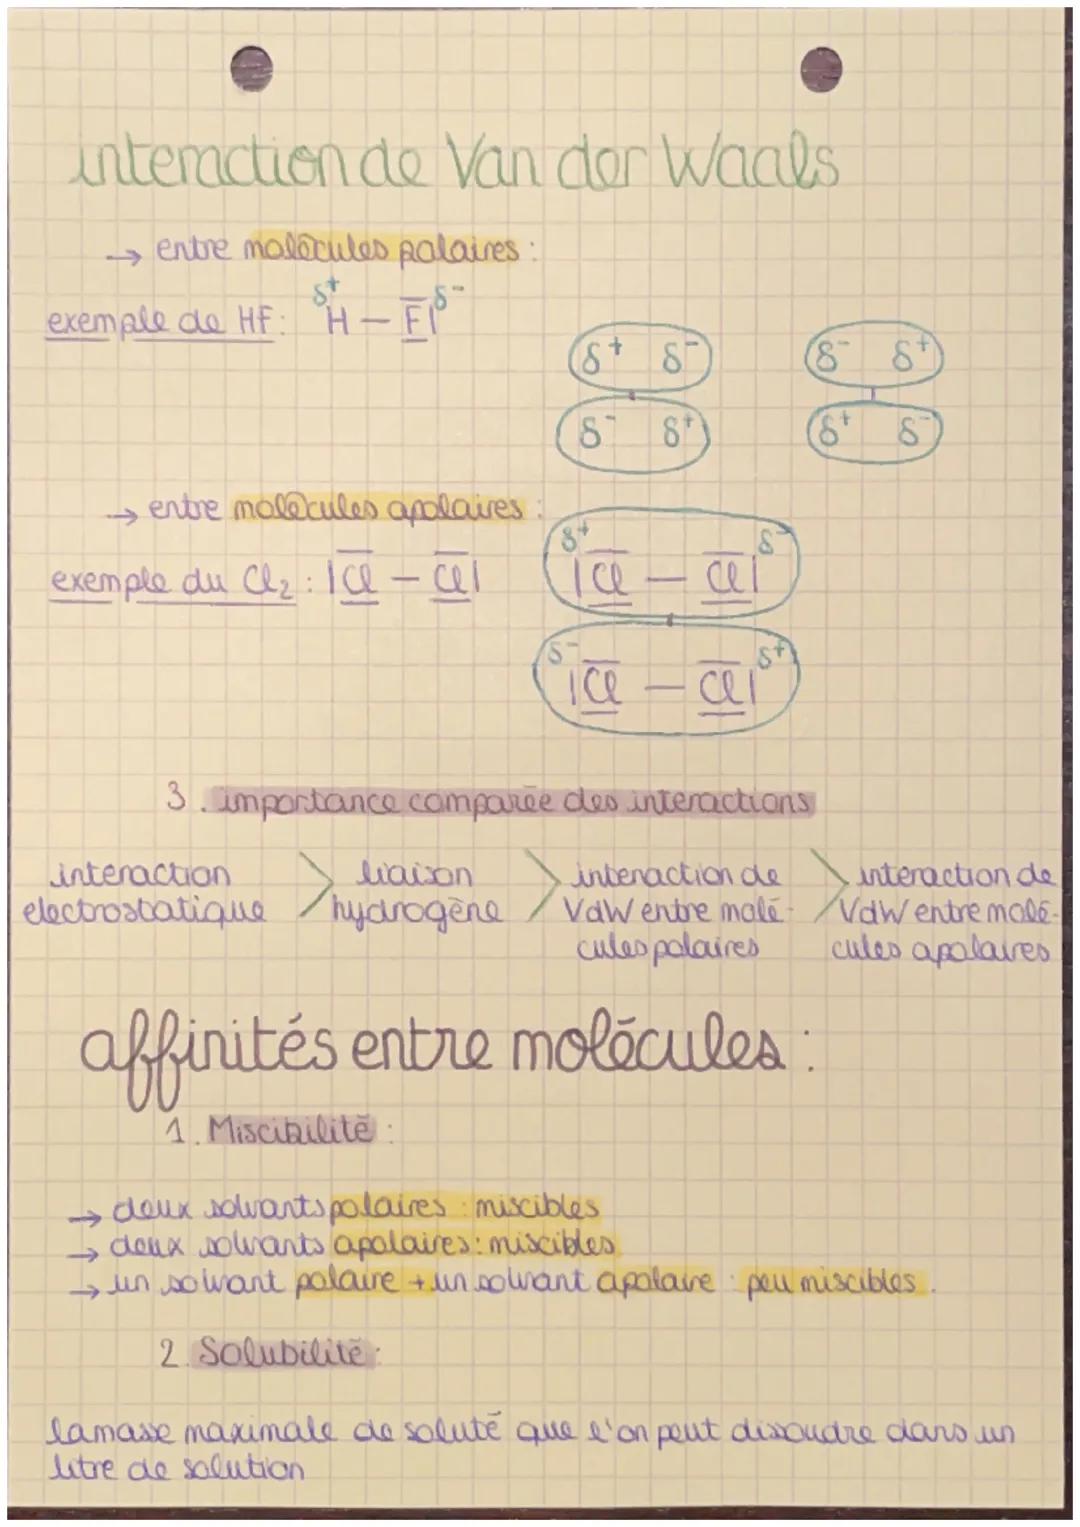 interaction de Van der Waals
→ entre molécules polaires :
exemple de HF : δ+ H — F| δ-
δ+ δ- δ- δ+
δ- δ+ δ+ δ-
→ entre molécules apolaires :
δ+ δ-
exemple du Cl₂ : |Cl — Cl| |Cl — Cl|
δ- δ+
|Cl — Cl|
3. importance comparée des interactions
interaction > liaison > interaction de > interaction de
electrostatique hydrogène VdW entre molé- VdW entre molé-
cules polaires cules apolaires
affinités entre molécules :
1. Miscibilité :
→ deux solvants polaires : miscibles
→ deux solvants apolaires : miscibles
→ un solvant polaire + un solvant apolaire : peu miscibles.
2. Solubilité :
la masse maximale de soluté que l'on peut dissoudre dans un
litre de solution